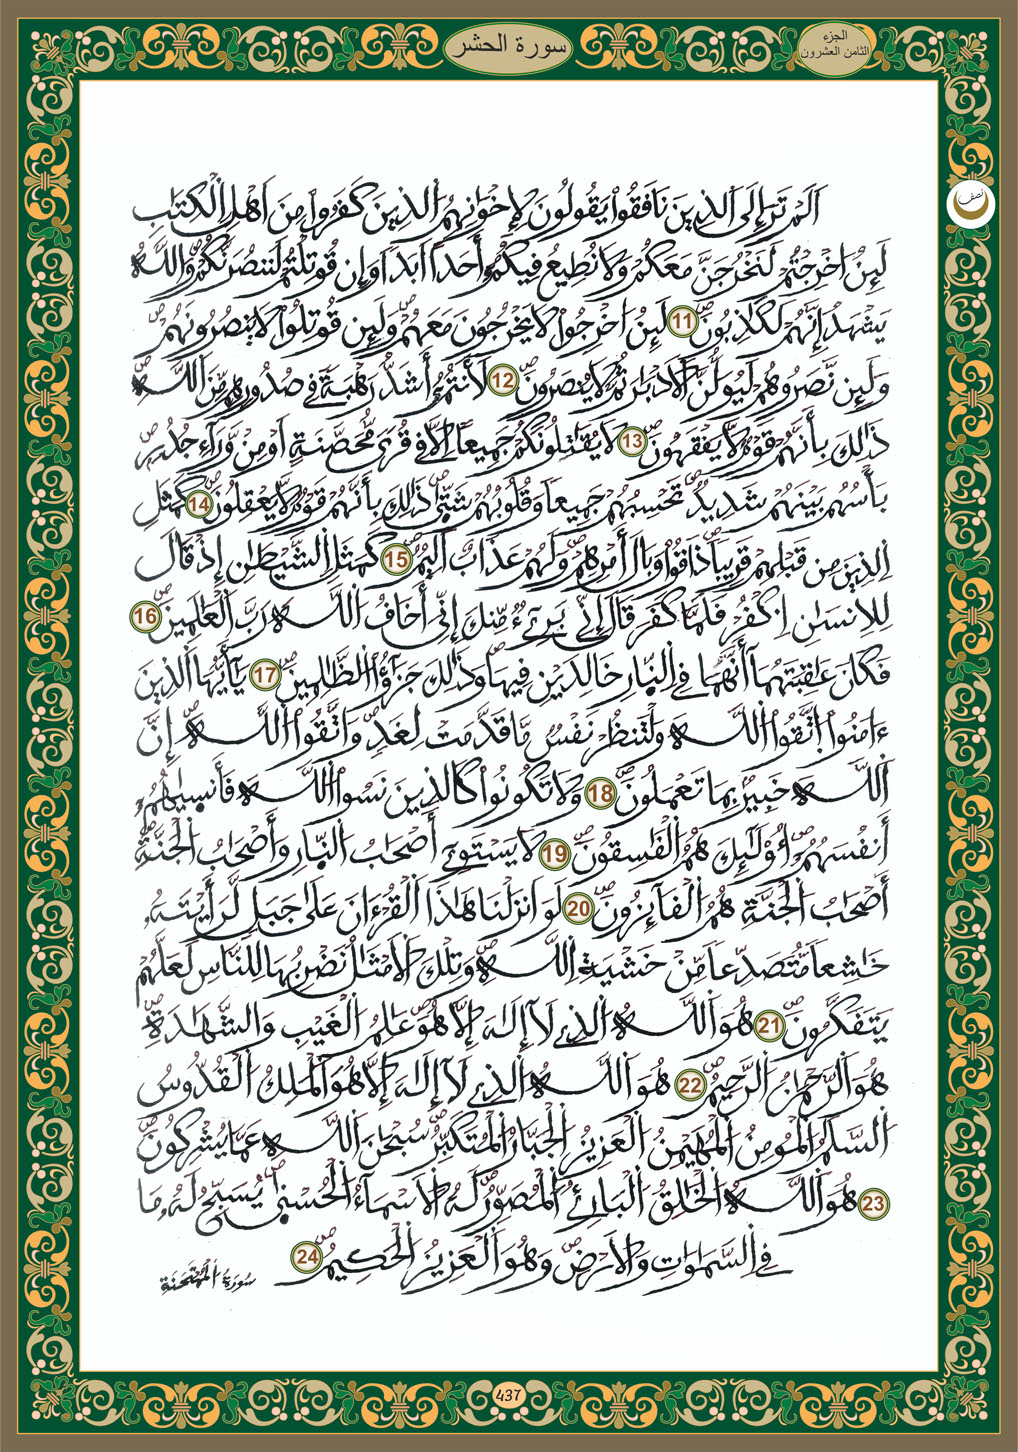 الجزء
الثامن العشرون
سورة الحشر
نصف
اَلَمْ تَرَ إِلَى اَلذِينَ نَافَقُواْ يَقُولُونَ لِإِخْوَٰنِهِمُ اُلذِينَ كَفَرُواْ مِنَ اَهْلِ اِلْكِتَٰبِ
لَئِنُ اخْرِجْتُمْ لَنَخْرُجَنَّ مَعَكُمْ وَلَا نُطِيعُ فِيكُمُۥٓ أَحَداً اَبَداً وَإِن قُوتِلْتُمْ لَنَنصُرَنَّكُمْ وَاللَّهُ
يَشْهَدُ إِنَّهُمْ لَكَٰذِبُونَ 11 لَئِنُ اخْرِجُواْ لَا يَخْرُجُونَ مَعَهُمْ وَلَئِن قُوتِلُواْ لَا يَنصُرُونَهُمْ
وَلَئِن نَّصَرُوهُمْ لَيُوَلُّنَّ اَلَادْبَٰرَ ثُمَّ لَا يُنصَرُونَ 12 لَأَنتُمُۥٓ أَشَدُّ رَهْبَةً فِے صُدُورِهِم مِّنَ اَللَّهِ
ذَٰلِكَ بِأَنَّهُمْ قَوْمٌ لَّا يَفْقَهُونَ 13 لَا يُقَٰتِلُونَكُمْ جَمِيعاً اِلَّا فِے قُرىً مُّحَصَّنَةٍ اَوْ مِنْ وَّرَآءِ جُدُرٍ
بَأْسُهُم بَيْنَهُمْ شَدِيدٌ تَحْسِبُهُمْ جَمِيعاً وَقُلُوبُهُمْ شَتّ۪يٰ ذَٰلِكَ بِأَنَّهُمْ قَوْمٌ لَّا يَعْقِلُونَ 14 كَمَثَلِ
اِلذِينَ مِن قَبْلِهِمْ قَرِيباً ذَاقُواْ وَبَالَ أَمْرِهِمْ وَلَهُمْ عَذَابٌ اَلِيمٌ 15 كَمَثَلِ اِلشَّيْطَٰنِ إِذْ قَالَ
لِلِانسَٰنِ اِ۟كْفُرْ فَلَمَّا كَفَرَ قَالَ إِنِّے بَرِےٓءٌ مِّنكَ إِنِّيَ أَخَافُ اُللَّهَ رَبَّ اَلْعَٰلَمِينَ 16
فَكَانَ عَٰقِبَتَهُمَآ أَنَّهُمَا فِے اِلنّ۪ارِ خَٰلِدَيْنِ فِيهَا وَذَٰلِكَ جَزَٰٓؤُاْ اُلظَّٰلِمِينَ 17 يَٰٓأَيُّهَا اَلذِينَ
ءَامَنُواْ اُ۪تَّقُواْ اُللَّهَ وَلْتَنظُرْ نَفْسٌ مَّا قَدَّمَتْ لِغَدٍ وَاتَّقُواْ اُللَّهَ إِنَّ
اَللَّهَ خَبِيرٌ بِمَا تَعْمَلُونَ 18 وَلَا تَكُونُواْ كَالذِينَ نَسُواْ اُللَّهَ فَأَنس۪يٰهُمُۥٓ
أَنفُسَهُمُۥٓ أُوْلَٰٓئِكَ هُمُ اُلْفَٰسِقُونَ 19 لَا يَسْتَوِےٓ أَصْحَٰبُ اُلنّ۪ارِ وَأَصْحَٰبُ اُلْجَنَّةِ
أَصْحَٰبُ اُلْجَنَّةِ هُمُ اُلْفَآئِزُونَ 20 لَوَ اَنزَلْنَا هَٰذَا اَلْقُرْءَانَ عَلَىٰ جَبَلٍ لَّرَأَيْتَهُۥ
خَٰشِعاً مُّتَصَدِّعاً مِّنْ خَشْيَةِ اِللَّهِ وَتِلْكَ اَلَامْثَٰلُ نَضْرِبُهَا لِلنَّاسِ لَعَلَّهُمْ
يَتَفَكَّرُونَ 21 هُوَ اَللَّهُ اُلذِے لَآ إِلَٰهَ إِلَّا هُوَ عَٰلِمُ اُلْغَيْبِ وَالشَّهَٰدَةِ
هُوَ اَلرَّحْمَٰنُ اُلرَّحِيمُ 22 هُوَ اَللَّهُ اُلذِے لَآ إِلَٰهَ إِلَّا هُوَ اَلْمَلِكُ اُلْقُدُّوسُ
اُلسَّلَٰمُ اُلْمُومِنُ اُلْمُهَيْمِنُ اُلْعَزِيزُ اُلْجَبَّارُ اُلْمُتَكَبِّرُ سُبْحَٰنَ اَللَّهِ عَمَّا يُشْرِكُونَ
23 هُوَ اَللَّهُ اُلْخَٰلِقُ اُلْبَارِئُ اُلْمُصَوِّرُ لَهُ اُلَاسْمَآءُ اُلْحُسْن۪يٰ يُسَبِّحُ لَهُۥ مَا
فِے اِلسَّمَٰوَٰتِ وَالَارْضِ وَهُوَ اَلْعَزِيزُ اُلْحَكِيمُ 24
سُورَةُ اُلْمُمْتَحَنَةِ
437